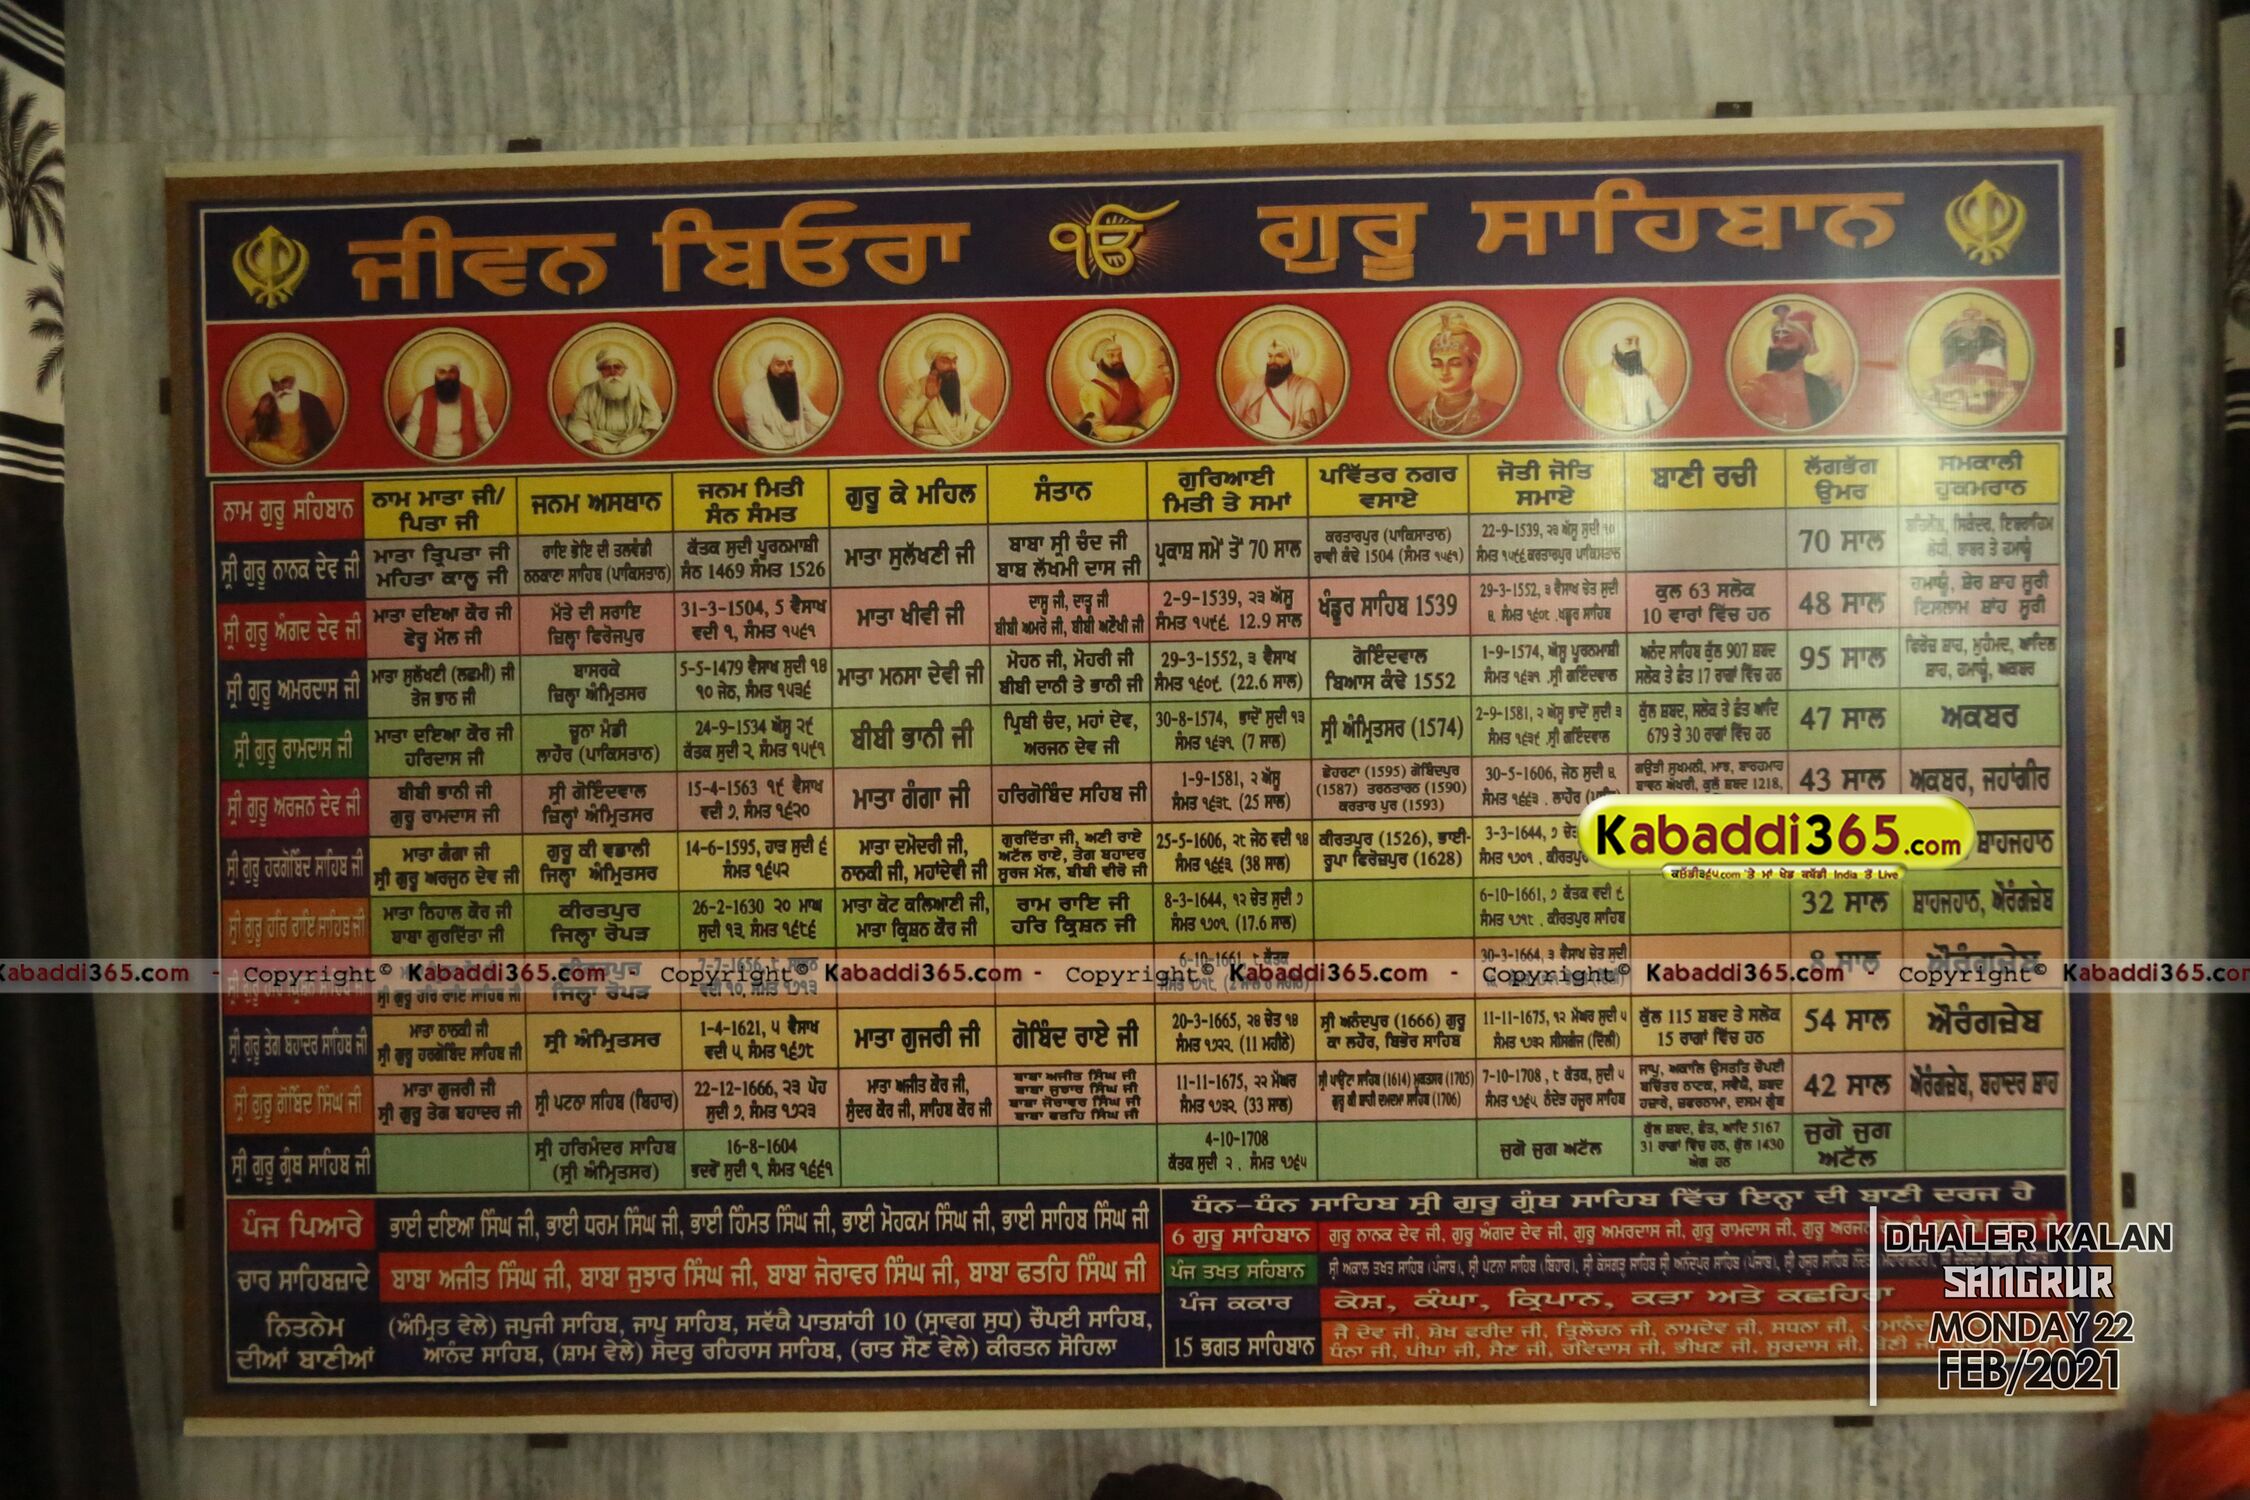 ਜੀਵਨ ਬਿਓਰਾ ੴ ਗੁਰੂ ਸਾਹਿਬਾਨ
ਨਾਮ ਗੁਰੂ ਸਹਿਬਾਨ
ਨਾਮ ਮਾਤਾ ਜੀ/
ਪਿਤਾ ਜੀ
ਜਨਮ ਅਸਥਾਨ
ਜਨਮ ਮਿਤੀ
ਸੰਨ ਸੰਮਤ
ਗੁਰੂ ਕੇ ਮਹਿਲ
ਸੰਤਾਨ
ਗੁਰਿਆਈ
ਮਿਤੀ ਤੇ ਸਮਾਂ
ਪਵਿੱਤਰ ਨਗਰ
ਵਸਾਏ
ਜੋਤੀ ਜੋਤਿ
ਸਮਾਏ
ਬਾਣੀ ਰਚੀ
ਲੱਗਭੱਗ
ਉਮਰ
ਸਮਕਾਲੀ
ਹੁਕਮਰਾਨ
ਸ੍ਰੀ ਗੁਰੂ ਨਾਨਕ ਦੇਵ ਜੀ
ਮਾਤਾ ਤ੍ਰਿਪਤਾ ਜੀ
ਮਹਿਤਾ ਕਾਲੂ ਜੀ
ਰਾਇ ਭੋਇ ਦੀ ਤਲਵੰਡੀ
ਨਨਕਾਣਾ ਸਾਹਿਬ (ਪਾਕਿਸਤਾਨ)
ਕੱਤਕ ਸੁਦੀ ਪੂਰਨਮਾਸ਼ੀ
ਸੰਨ 1469 ਸੰਮਤ 1526
ਮਾਤਾ ਸੁਲੱਖਣੀ ਜੀ
ਬਾਬਾ ਸ੍ਰੀ ਚੰਦ ਜੀ
ਬਾਬ ਲੱਖਮੀ ਦਾਸ ਜੀ
ਪ੍ਰਕਾਸ਼ ਸਮੇਂ ਤੋਂ 70 ਸਾਲ
ਕਰਤਾਰਪੁਰ (ਪਾਕਿਸਤਾਨ)
ਰਾਵੀ ਕੰਢੇ 1504 (ਸੰਮਤ ੧੫੬੧)
22-9-1539, ੨੩ ਅੱਸੂ ਸੁਦੀ ੧੦
ਸੰਮਤ ੧੫੯੬ ਕਰਤਾਰਪੁਰ ਪਾਕਿਸਤਾਨ
70 ਸਾਲ
ਸ੍ਰੀ ਗੁਰੂ ਅੰਗਦ ਦੇਵ ਜੀ
ਮਾਤਾ ਦਇਆ ਕੌਰ ਜੀ
ਫੇਰੂ ਮੱਲ ਜੀ
ਮੱਤੇ ਦੀ ਸਰਾਇ
ਜ਼ਿਲ੍ਹਾ ਫਿਰੋਜਪੁਰ
31-3-1504, 5 ਵੈਸਾਖ
ਵਦੀ ੧, ਸੰਮਤ ੧੫੬੧
ਮਾਤਾ ਖੀਵੀ ਜੀ
ਦਾਸੂ ਜੀ, ਦਾਤੂ ਜੀ
ਬੀਬੀ ਅਮਰੋ ਜੀ, ਬੀਬੀ ਅਣੋਖੀ ਜੀ
2-9-1539, ੨੩ ਅੱਸੂ
ਸੰਮਤ ੧੫੯੬ 12.9 ਸਾਲ
ਖੰਡੂਰ ਸਾਹਿਬ 1539
29-3-1552, ੩ ਵੈਸਾਖ ਚੇਤ ਸੁਦੀ
੪, ਸੰਮਤ ੧੬੦੯ ,ਖਡੂਰ ਸਾਹਿਬ
ਕੁਲ 63 ਸਲੋਕ
10 ਵਾਰਾਂ ਵਿੱਚ ਹਨ
48 ਸਾਲ
ਹਮਾਯੂੰ, ਸ਼ੇਰ ਸ਼ਾਹ ਸੂਰੀ
ਇਸਲਾਮ ਸ਼ਾਂਹ ਸੂਰੀ
ਸ੍ਰੀ ਗੁਰੂ ਅਮਰਦਾਸ ਜੀ
ਮਾਤਾ ਸੁਲੱਖਣੀ (ਲਛਮੀ) ਜੀ
ਤੇਜ ਭਾਨ ਜੀ
ਬਾਸਰਕੇ
ਜ਼ਿਲ੍ਹਾ ਅੰਮ੍ਰਿਤਸਰ
5-5-1479 ਵੈਸਾਖ ਸੁਦੀ ੧੪
੧੦ ਜੇਠ, ਸੰਮਤ ੧੫੩੬
ਮਾਤਾ ਮਨਸਾ ਦੇਵੀ ਜੀ
ਮੋਹਨ ਜੀ, ਮੋਹਰੀ ਜੀ
ਬੀਬੀ ਦਾਨੀ ਤੇ ਭਾਨੀ ਜੀ
29-3-1552, ੩ ਵੈਸਾਖ
ਸੰਮਤ ੧੬੦੯, (22.6 ਸਾਲ)
ਗੋਇੰਦਵਾਲ
ਬਿਆਸ ਕੰਢੇ 1552
1-9-1574, ਅੱਸੂ ਪੂਰਨਮਾਸ਼ੀ
ਸੰਮਤ ੧੬੩੧ ,ਸ੍ਰੀ ਗਇੰਦਵਾਲ
ਅਨੰਦ ਸਾਹਿਬ ਕੁੱਲ 907 ਸ਼ਬਦ
ਸਲੋਕ ਤੇ ਛੰਤ 17 ਰਾਗਾਂ ਵਿੱਚ ਹਨ
95 ਸਾਲ
ਸ੍ਰੀ ਗੁਰੂ ਰਾਮਦਾਸ ਜੀ
ਮਾਤਾ ਦਇਆ ਕੌਰ ਜੀ
ਹਰਿਦਾਸ ਜੀ
ਚੂਨਾ ਮੰਡੀ
ਲਾਹੌਰ (ਪਾਕਿਸਤਾਨ)
24-9-1534 ਅੱਸੂ ੨੯
ਕੱਤਕ ਸੁਦੀ ੨, ਸੰਮਤ ੧੫੯੧
ਬੀਬੀ ਭਾਨੀ ਜੀ
ਪ੍ਰਿਥੀ ਚੰਦ, ਮਹਾਂ ਦੇਵ,
ਅਰਜਨ ਦੇਵ ਜੀ
30-8-1574, ਭਾਦੋਂ ਸੁਦੀ ੧੩
ਸੰਮਤ ੧੬੩੧, (7 ਸਾਲ)
ਸ੍ਰੀ ਅੰਮ੍ਰਿਤਸਰ (1574)
2-9-1581, ੨ ਅੱਸੂ ਭਾਦੋਂ ਸੁਦੀ ੩
ਸੰਮਤ ੧੬੩੯ ,ਸ੍ਰੀ ਗਇੰਦਵਾਲ
ਕੁੱਲ ਸ਼ਬਦ, ਸਲੋਕ ਤੇ ਛੰਤ ਆਦਿ
679 ਤੇ 30 ਰਾਗਾਂ ਵਿੱਚ ਹਨ
47 ਸਾਲ
ਅਕਬਰ
ਸ੍ਰੀ ਗੁਰੂ ਅਰਜਨ ਦੇਵ ਜੀ
ਬੀਬੀ ਭਾਨੀ ਜੀ
ਗੁਰੂ ਰਾਮਦਾਸ ਜੀ
ਸ੍ਰੀ ਗੋਇੰਦਵਾਲ
ਜ਼ਿਲ੍ਹਾਂ ਅੰਮ੍ਰਿਤਸਰ
15-4-1563 ੧੯ ਵੈਸਾਖ
ਵਦੀ ੭, ਸੰਮਤ ੧੬੨੦
ਮਾਤਾ ਗੰਗਾ ਜੀ
ਹਰਿਗੋਬਿੰਦ ਸਹਿਬ ਜੀ
1-9-1581, ੨ ਅੱਸੂ
ਸੰਮਤ ੧੬੩੮, (25 ਸਾਲ)
ਛੇਹਰਟਾ (1595) ਗੋਬਿੰਦਪੁਰ
(1587) ਤਰਨਤਾਰਨ (1590)
ਕਰਤਾਰ ਪੁਰ (1593)
30-5-1606, ਜੇਠ ਸੁਦੀ ੪
ਸੰਮਤ ੧੬੬੩ , ਲਾਹੌਰ
ਗਉੜੀ ਸੁਖਮਨੀ, ਮਾਝ, ਬਾਰਹਮਾਹ
ਬਾਵਨ ਅੱਖਰੀ, ਕੁਲੁ ਸ਼ਬਦ 1218,
43 ਸਾਲ
ਅਕਬਰ, ਜਹਾਂਗੀਰ
ਸ੍ਰੀ ਗੁਰੂ ਹਰਗੋਬਿੰਦ ਸਾਹਿਬ ਜੀ
ਮਾਤਾ ਗੰਗਾ ਜੀ
ਸ੍ਰੀ ਗੁਰੂ ਅਰਜੁਨ ਦੇਵ ਜੀ
ਗੁਰੂ ਕੀ ਵਡਾਲੀ
ਜਿਲ੍ਹਾ ਅੰਮ੍ਰਿਤਸਰ
14-6-1595, ਹਾੜ ਸੁਦੀ ੬
ਸੰਮਤ ੧੬੫੨
ਮਾਤਾ ਦਮੋਦਰੀ ਜੀ,
ਨਾਨਕੀ ਜੀ, ਮਹਾਂਦੇਵੀ ਜੀ
ਗੁਰਦਿੱਤਾ ਜੀ, ਅਣੀ ਰਾਏ
ਅਟੱਲ ਰਾਏ, ਤੇਗ ਬਹਾਦਰ
ਸੂਰਜ ਮੱਲ, ਬੀਬੀ ਵੀਰੋ ਜੀ
25-5-1606, ੨੮ ਜੇਠ ਵਦੀ ੧੪
ਸੰਮਤ ੧੬੬੩, (38 ਸਾਲ)
ਕੀਰਤਪੁਰ (1526), ਭਾਈ-
ਰੂਪਾ ਫਿਰੋਜ਼ਪੁਰ (1628)
3-3-1644, ੭ ਚੇਤ
ਸੰਮਤ ੧੭੦੧ , ਕੀਰਤਪੁਰ
ਸ਼ਾਹਜਹਾਨ
ਸ੍ਰੀ ਗੁਰੂ ਹਰਿ ਰਾਇ ਸਾਹਿਬ ਜੀ
ਮਾਤਾ ਨਿਹਾਲ ਕੌਰ ਜੀ
ਬਾਬਾ ਗੁਰਦਿੱਤਾ ਜੀ
ਕੀਰਤਪੁਰ
ਜਿਲ੍ਹਾ ਰੋਪੜ
26-2-1630 ੨੦ ਮਾਘ
ਸੁਦੀ ੧੩, ਸੰਮਤ ੧੬੮੬
ਮਾਤਾ ਕੋਟ ਕਲਿਆਣੀ ਜੀ,
ਮਾਤਾ ਕ੍ਰਿਸ਼ਨ ਕੌਰ ਜੀ
ਰਾਮ ਰਾਇ ਜੀ
ਹਰਿ ਕ੍ਰਿਸ਼ਨ ਜੀ
8-3-1644, ੧੨ ਚੇਤ ਸੁਦੀ ੭
ਸੰਮਤ ੧੭੦੧, (17.6 ਸਾਲ)
6-10-1661, ੭ ਕੱਤਕ ਵਦੀ ੯
ਸੰਮਤ ੧੭੧੮ , ਕੀਰਤਪੁਰ ਸਾਹਿਬ
32 ਸਾਲ
ਸ਼ਾਹਜਹਾਨ, ਔਰੰਗਜ਼ੇਬ
ਸ੍ਰੀ ਗੁਰੂ ਹਰਿ ਰਾਇ ਸਾਹਿਬ ਜੀ
ਕੀਰਤਪੁਰ
ਜਿਲ੍ਹਾ ਰੋਪੜ
7-7-1656,
ਵਦੀ ੧੦, ਸੰਮਤ ੧੭੧੩
6-10-1661, ੮ ਕੱਤਕ
30-3-1664, ੩ ਵੈਸਾਖ ਚੇਤ ਸੁਦੀ
8 ਸਾਲ
ਔਰੰਗਜ਼ੇਬ
ਸ੍ਰੀ ਗੁਰੂ ਤੇਗ ਬਹਾਦਰ ਸਾਹਿਬ ਜੀ
ਮਾਤਾ ਨਾਨਕੀ ਜੀ
ਸ੍ਰੀ ਗੁਰੂ ਹਰਗੋਬਿੰਦ ਸਾਹਿਬ ਜੀ
ਸ੍ਰੀ ਅੰਮ੍ਰਿਤਸਰ
1-4-1621, ੫ ਵੈਸਾਖ
ਵਦੀ ੫, ਸੰਮਤ ੧੬੭੮
ਮਾਤਾ ਗੁਜਰੀ ਜੀ
ਗੋਬਿੰਦ ਰਾਏ ਜੀ
20-3-1665, ੨੪ ਚੇਤ ੧੪
ਸੰਮਤ ੧੭੨੨, (11 ਮਹੀਨੇ)
ਸ੍ਰੀ ਅਨੰਦਪੁਰ (1666) ਗੁਰੂ
ਕਾ ਲਹੌਰ, ਬਿਭੋਰ ਸਾਹਿਬ
11-11-1675, ੧੨ ਮੱਘਰ ਸੁਦੀ ੫
ਸੰਮਤ ੧੭੩੨ ਸੀਸਗੰਜ (ਦਿੱਲੀ)
ਕੁੱਲ 115 ਸ਼ਬਦ ਤੇ ਸਲੋਕ
15 ਰਾਗਾਂ ਵਿੱਚ ਹਨ
54 ਸਾਲ
ਔਰੰਗਜ਼ੇਬ
ਸ੍ਰੀ ਗੁਰੂ ਗੋਬਿੰਦ ਸਿੰਘ ਜੀ
ਮਾਤਾ ਗੁਜਰੀ ਜੀ
ਸ੍ਰੀ ਗੁਰੂ ਤੇਗ ਬਹਾਦਰ ਜੀ
ਸ੍ਰੀ ਪਟਨਾ ਸਹਿਬ (ਬਿਹਾਰ)
22-12-1666, ੨੩ ਪੋਹ
ਸੁਦੀ ੭, ਸੰਮਤ ੧੭੨੩
ਮਾਤਾ ਅਜੀਤ ਕੌਰ ਜੀ,
ਸੁੰਦਰ ਕੌਰ ਜੀ, ਸਾਹਿਬ ਕੌਰ ਜੀ
ਬਾਬਾ ਅਜੀਤ ਸਿੰਘ ਜੀ
ਬਾਬਾ ਜੁਝਾਰ ਸਿੰਘ ਜੀ
ਬਾਬਾ ਜੋਰਾਵਰ ਸਿੰਘ ਜੀ
ਬਾਬਾ ਫਤਹਿ ਸਿੰਘ ਜੀ
11-11-1675, ੨੨ ਮੱਘਰ
ਸੰਮਤ ੧੭੩੨, (33 ਸਾਲ)
ਸ੍ਰੀ ਪਾਉਂਟਾ ਸਾਹਿਬ (1614) ਮੁਕਤਸਰ (1705)
ਗੁਰੂ ਕੀ ਕਾਸ਼ੀ ਦਮਦਮਾ ਸਾਹਿਬ (1706)
7-10-1708 , ੮ ਕੱਤਕ, ਸੁਦੀ ੫
ਸੰਮਤ ੧੭੬੫ ਨੰਦੇੜ ਹਜ਼ੂਰ ਸਾਹਿਬ
ਜਾਪੁ, ਅਕਾਲਿ ਉਸਤਤਿ ਚੌਪਈ
ਬਚਿੱਤਰ ਨਾਟਕ, ਸਵੈਯੈ, ਸ਼ਬਦ
ਹਜ਼ਾਰੇ, ਜ਼ਫਰਨਾਮਾ, ਦਸਮ ਗ੍ਰੰਥ
42 ਸਾਲ
ਔਰੰਗਜ਼ੇਬ, ਬਹਾਦਰ ਸ਼ਾਹ
ਸ੍ਰੀ ਗੁਰੂ ਗ੍ਰੰਥ ਸਾਹਿਬ ਜੀ
ਸ੍ਰੀ ਹਰਿਮੰਦਰ ਸਾਹਿਬ
(ਸ੍ਰੀ ਅੰਮ੍ਰਿਤਸਰ)
16-8-1604
ਭਦਰੋਂ ਸੁਦੀ ੧, ਸੰਮਤ ੧੬੬੧
4-10-1708
ਕੱਤਕ ਸੁਦੀ ੨ , ਸੰਮਤ ੧੭੬੫
ਜੁਗੋ ਜੁਗ ਅਟੱਲ
ਕੁੱਲ ਸ਼ਬਦ, ਛੰਤ, ਆਦਿ 5167
31 ਰਾਗਾਂ ਵਿੱਚ ਹਨ, ਕੁੱਲ 1430
ਅੰਗ ਹਨ
ਜੁਗੋ ਜੁਗ
ਅਟੱਲ
ਪੰਜ ਪਿਆਰੇ
ਭਾਈ ਦਇਆ ਸਿੰਘ ਜੀ, ਭਾਈ ਧਰਮ ਸਿੰਘ ਜੀ, ਭਾਈ ਹਿੰਮਤ ਸਿੰਘ ਜੀ, ਭਾਈ ਮੋਹਕਮ ਸਿੰਘ ਜੀ, ਭਾਈ ਸਾਹਿਬ ਸਿੰਘ ਜੀ
ਚਾਰ ਸਾਹਿਬਜ਼ਾਦੇ
ਬਾਬਾ ਅਜੀਤ ਸਿੰਘ ਜੀ, ਬਾਬਾ ਜੁਝਾਰ ਸਿੰਘ ਜੀ, ਬਾਬਾ ਜੋਰਾਵਰ ਸਿੰਘ ਜੀ, ਬਾਬਾ ਫਤਹਿ ਸਿੰਘ ਜੀ
ਨਿਤਨੇਮ
ਦੀਆਂ ਬਾਣੀਆਂ
(ਅੰਮ੍ਰਿਤ ਵੇਲੇ) ਜਪੁਜੀ ਸਾਹਿਬ, ਜਾਪੁ ਸਾਹਿਬ, ਸਵੱਯੈ ਪਾਤਸ਼ਾਂਹੀ 10 (ਸ੍ਰਾਵਗ ਸੁਧ) ਚੌਪਈ ਸਾਹਿਬ,
ਆਨੰਦ ਸਾਹਿਬ, (ਸ਼ਾਮ ਵੇਲੇ) ਸੋਦਰੁ ਰਹਿਰਾਸ ਸਾਹਿਬ, (ਰਾਤ ਸੌਣ ਵੇਲੇ) ਕੀਰਤਨ ਸੋਹਿਲਾ
ਧੰਨ-ਧੰਨ ਸਾਹਿਬ ਸ੍ਰੀ ਗੁਰੂ ਗ੍ਰੰਥ ਸਾਹਿਬ ਵਿੱਚ ਇਨ੍ਹਾ ਦੀ ਬਾਣੀ ਦਰਜ ਹੈ
6 ਗੁਰੂ ਸਾਹਿਬਾਨ
ਗੁਰੂ ਨਾਨਕ ਦੇਵ ਜੀ, ਗੁਰੂ ਅੰਗਦ ਦੇਵ ਜੀ, ਗੁਰੂ ਅਮਰਦਾਸ ਜੀ, ਗੁਰੂ ਰਾਮਦਾਸ ਜੀ, ਗੁਰੂ ਅਰਜਨ
ਪੰਜ ਤਖਤ ਸਹਿਬਾਨ
ਸ੍ਰੀ ਅਕਾਲ ਤਖਤ ਸਾਹਿਬ (ਪੰਜਾਬ), ਸ੍ਰੀ ਪਟਨਾ ਸਾਹਿਬ (ਬਿਹਾਰ), ਸ੍ਰੀ ਕੇਸਗੜ੍ਹ ਸਾਹਿਬ ਸ੍ਰੀ ਅਨੰਦਪੁਰ ਸਾਹਿਬ (ਪੰਜਾਬ), ਸ੍ਰੀ ਹਜ਼ੂਰ ਸਾਹਿਬ
ਪੰਜ ਕਕਾਰ
ਕੇਸ਼, ਕੰਘਾ, ਕ੍ਰਿਪਾਨ, ਕੜਾ ਅਤੇ ਕਛਹਿਰਾ
15 ਭਗਤ ਸਾਹਿਬਾਨ
ਜੈ ਦੇਵ ਜੀ, ਸ਼ੇਖ ਫਰੀਦ ਜੀ, ਤ੍ਰਿਲੋਚਨ ਜੀ, ਨਾਮਦੇਵ ਜੀ, ਸਧਨਾ ਜੀ,
ਧੰਨਾ ਜੀ, ਪੀਪਾ ਜੀ, ਸੈਣ ਜੀ, ਰਵਿਦਾਸ ਜੀ, ਭੀਖਣ ਜੀ, ਸੂਰਦਾਸ ਜੀ, ਬੈਣੀ ਜੀ
Kabaddi365.com
ਕਬੱਡੀ੩੬੫.com 'ਤੇ ਮਾਂ ਖੇਡ ਕਬੱਡੀ India ਤੋਂ Live
Kabaddi365.com - Copyright© Kabaddi365.com - Copyright© Kabaddi365.com - Copyright© Kabaddi365.com - Copyright© Kabaddi365.com - Copyright© Kabaddi365.com
DHALER KALAN
SANGRUR
MONDAY 22
FEB/2021